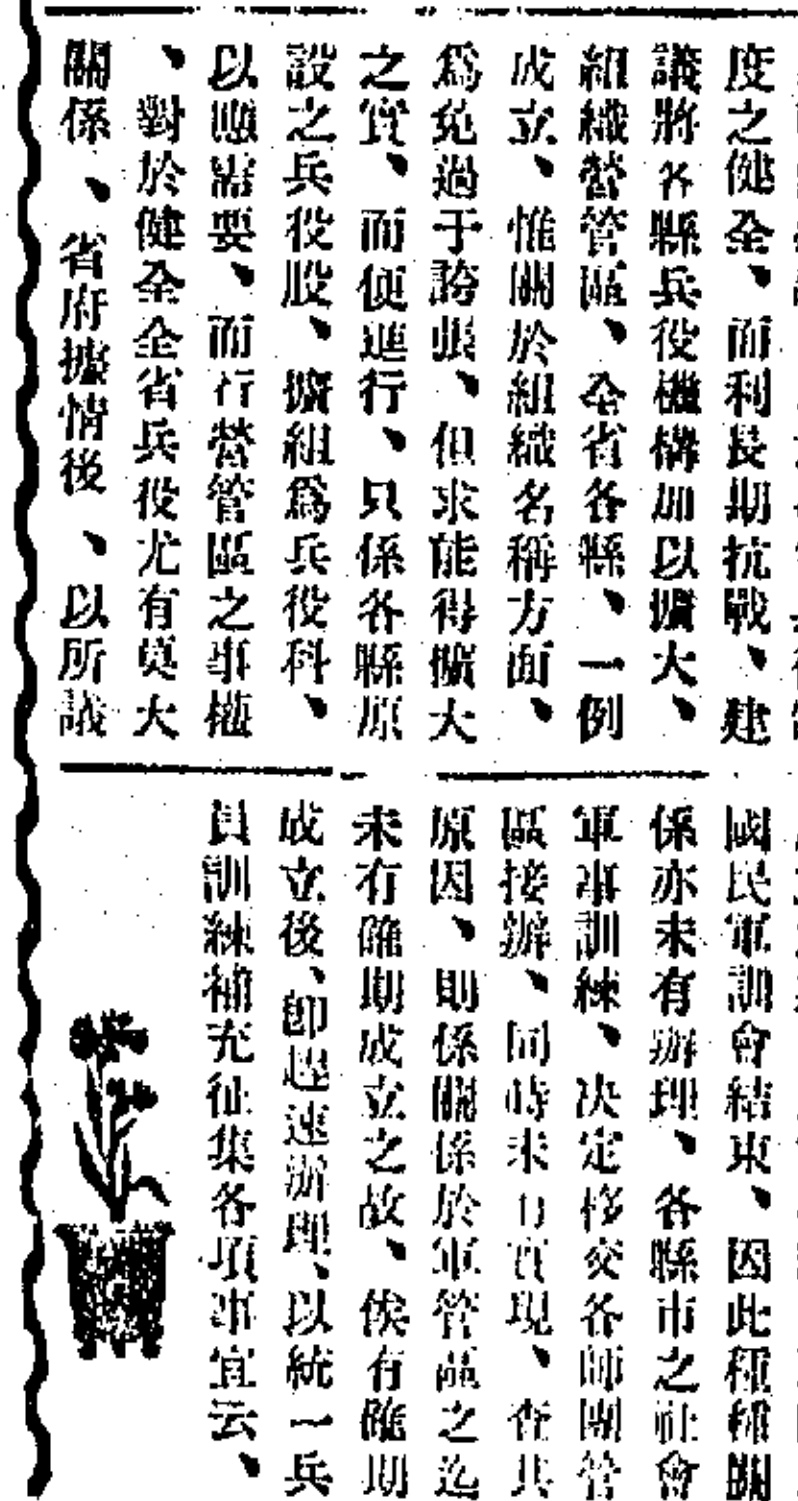 度之健全、而利長期抗戰、建
議將各縣兵役機構加以擴大、
組織營管區、全省各縣、一例
成立、惟關於組織名稱方面、
爲免過于誇張、但求能得擴大
之實、而便進行、只係各縣原
設之兵役股、擴組爲兵役科、
以應需要、而行營管區之事權
、對於健全全省兵役尤有莫大
關係、省府據情後、以所議
國民軍訓會結束、因此種種關
係亦未有辦理、各縣市之社會
軍事訓練、决定移交各師團管
區接辦、同時未有實現、查其
原因、則係關係於軍管區之迄
未有確期成立之故、俟有確期
成立後、卽趕速辦理、以統一兵
員訓練補充征集各項事宜云、